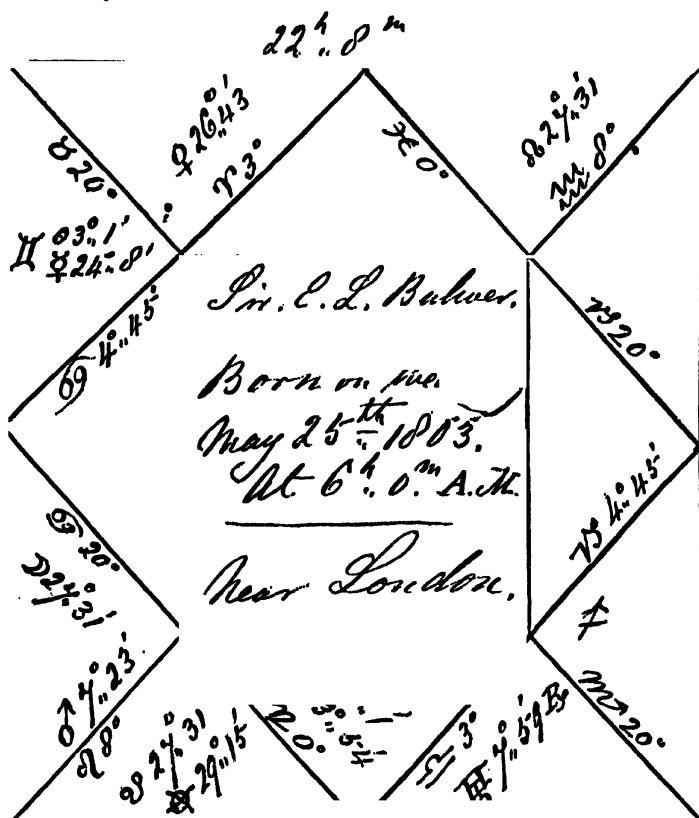 22ʰ 8ᵐ
♀ 26° 43'
♈ 3°
♓ 0°
☊ 27° 31'
♒ 8°
♉ 20°
♊ ☉ 3° 1'
☿ 24° 8'
♋ 4° 45'
♑ 20°
Sir. E. L. Bulwer.
Born on
May 25ᵗʰ 1803.
At 6ʰ 0ᵐ A.M.
Near London.
♑ 4° 45'
♋ 20°
☽ 27° 31'
♂ 7° 23'
♌ 8°
☋ 27° 31'
29° 15'
0°
♎ 3°
7° 59 ℞
♏ 20°